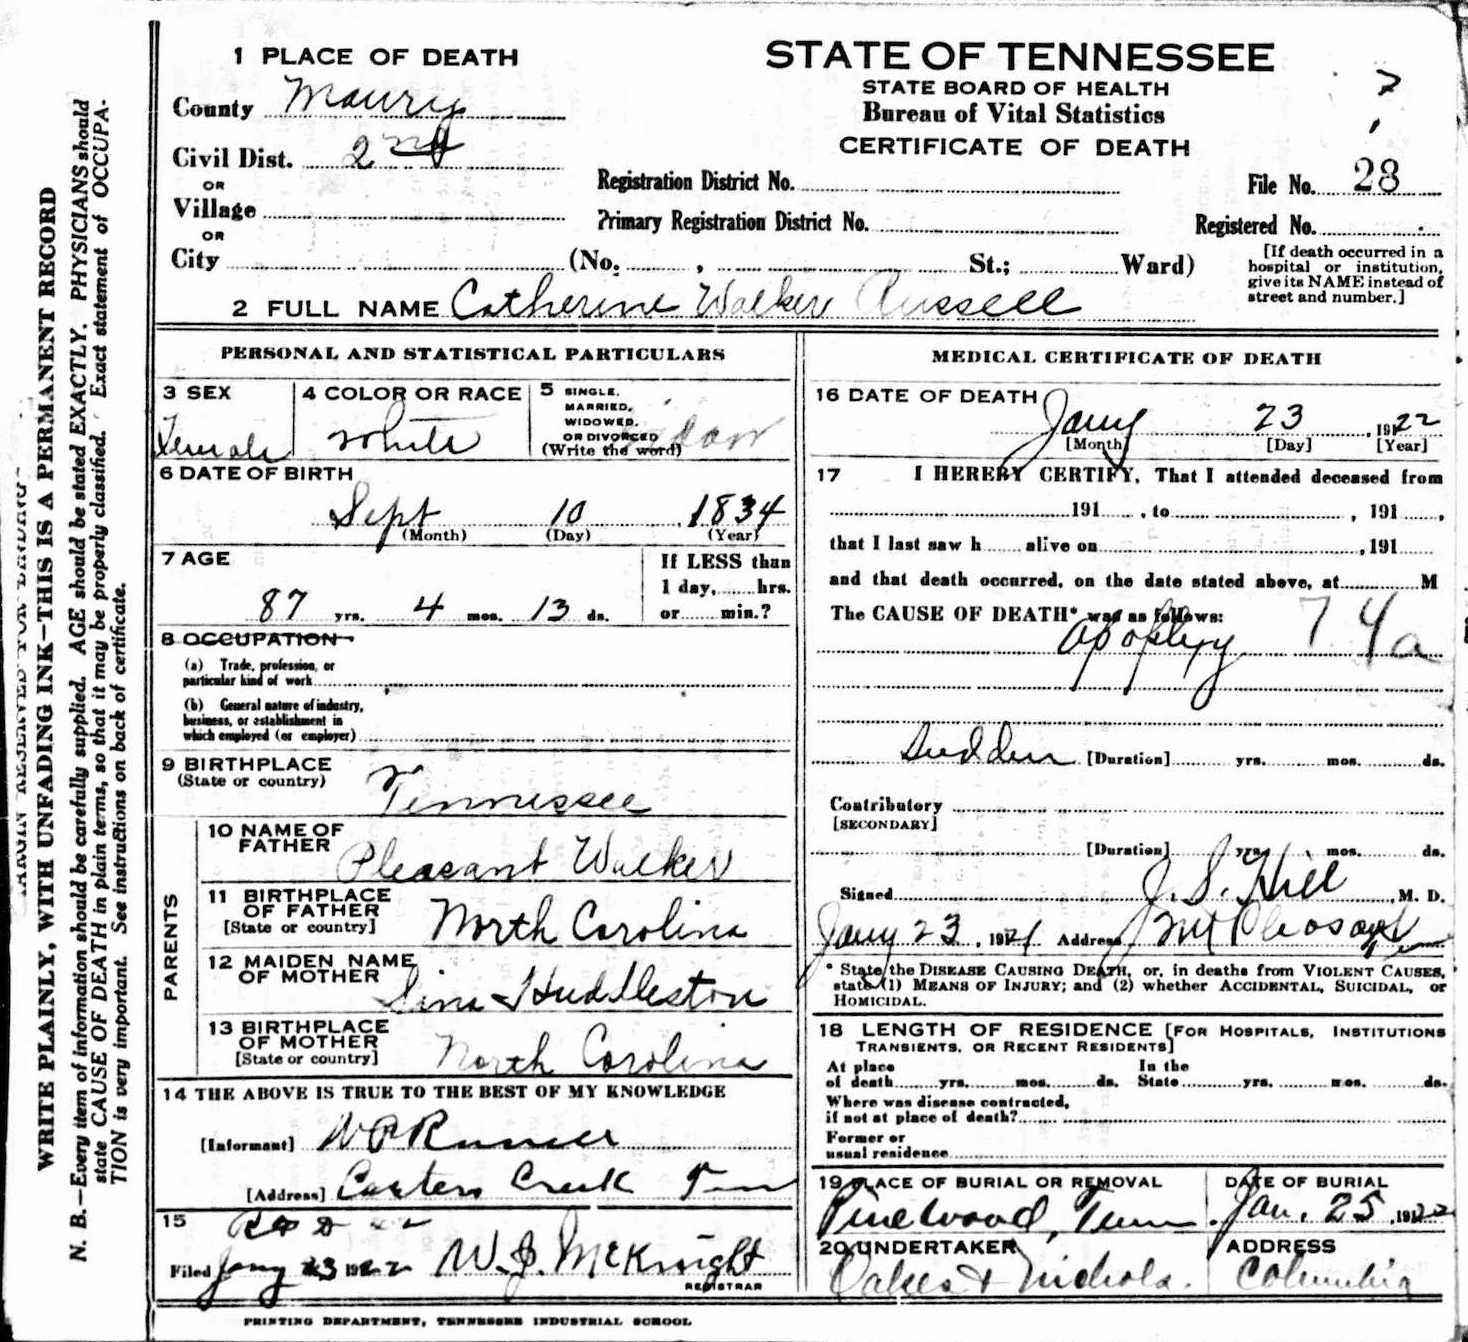 1 PLACE OF DEATH
County Maury
Civil Dist. 2nd
OR
Village
OR
City (No. , St.; Ward)
STATE OF TENNESSEE
STATE BOARD OF HEALTH
Bureau of Vital Statistics
CERTIFICATE OF DEATH
Registration District No.
Primary Registration District No.
File No. 28
Registered No.
[If death occurred in a
hospital or institution,
give its NAME instead of
street and number.]
2 FULL NAME Catherine Walker Russell
PERSONAL AND STATISTICAL PARTICULARS
3 SEX
Female
4 COLOR OR RACE
White
5 SINGLE,
MARRIED,
WIDOWED,
OR DIVORCED
(Write the word)
6 DATE OF BIRTH
Sept 10 1834
(Month) (Day) (Year)
7 AGE
87 yrs. 4 mos. 13 ds.
If LESS than
1 day, hrs.
or min.?
8 OCCUPATION
(a) Trade, profession, or
particular kind of work
(b) General nature of industry,
business, or establishment in
which employed (or employer)
9 BIRTHPLACE
(State or country)
Tennessee
PARENTS
10 NAME OF
FATHER
Pleasant Walker
11 BIRTHPLACE
OF FATHER
[State or country]
North Carolina
12 MAIDEN NAME
OF MOTHER
Sina Huddleston
13 BIRTHPLACE
OF MOTHER
[State or country]
North Carolina
14 THE ABOVE IS TRUE TO THE BEST OF MY KNOWLEDGE
[Informant] W P Russell
[Address] Carters Creek Tenn
15
Filed Jany 23 1922 W. J. McKnight
REGISTRAR
MEDICAL CERTIFICATE OF DEATH
16 DATE OF DEATH
Jany 23 , 1922
[Month] [Day] [Year]
17 I HEREBY CERTIFY, That I attended deceased from
191 , to , 191 ,
that I last saw h alive on , 191
and that death occurred, on the date stated above, at M
The CAUSE OF DEATH* was as follows:
Apoplexy 74a
Sudden [Duration] yrs. mos. ds.
Contributory
[SECONDARY]
[Duration] yrs. mos. ds.
Signed J. S. Hill , M. D.
Jany 23 , 1921 Address Mt Pleasant Tenn
* State the DISEASE CAUSING DEATH, or, in deaths from VIOLENT CAUSES,
state (1) MEANS OF INJURY; and (2) whether ACCIDENTAL, SUICIDAL, or
HOMICIDAL.
18 LENGTH OF RESIDENCE [FOR HOSPITALS, INSTITUTIONS
TRANSIENTS, OR RECENT RESIDENTS]
At place In the
of death yrs. mos. ds. State yrs. mos. ds.
Where was disease contracted,
if not at place of death?
Former or
usual residence
19 PLACE OF BURIAL OR REMOVAL
Pinewood, Tenn
DATE OF BURIAL
Jan. 25 , 1922
20 UNDERTAKER
Oakes & Nichols.
ADDRESS
Columbia
PRINTING DEPARTMENT, TENNESSEE INDUSTRIAL SCHOOL
WRITE PLAINLY, WITH UNFADING INK—THIS IS A PERMANENT RECORD
N. B.—Every item of information should be carefully supplied. AGE should be stated EXACTLY. PHYSICIANS should
state CAUSE OF DEATH in plain terms, so that it may be properly classified. Exact statement of OCCUPA-
TION is very important. See instructions on back of certificate.